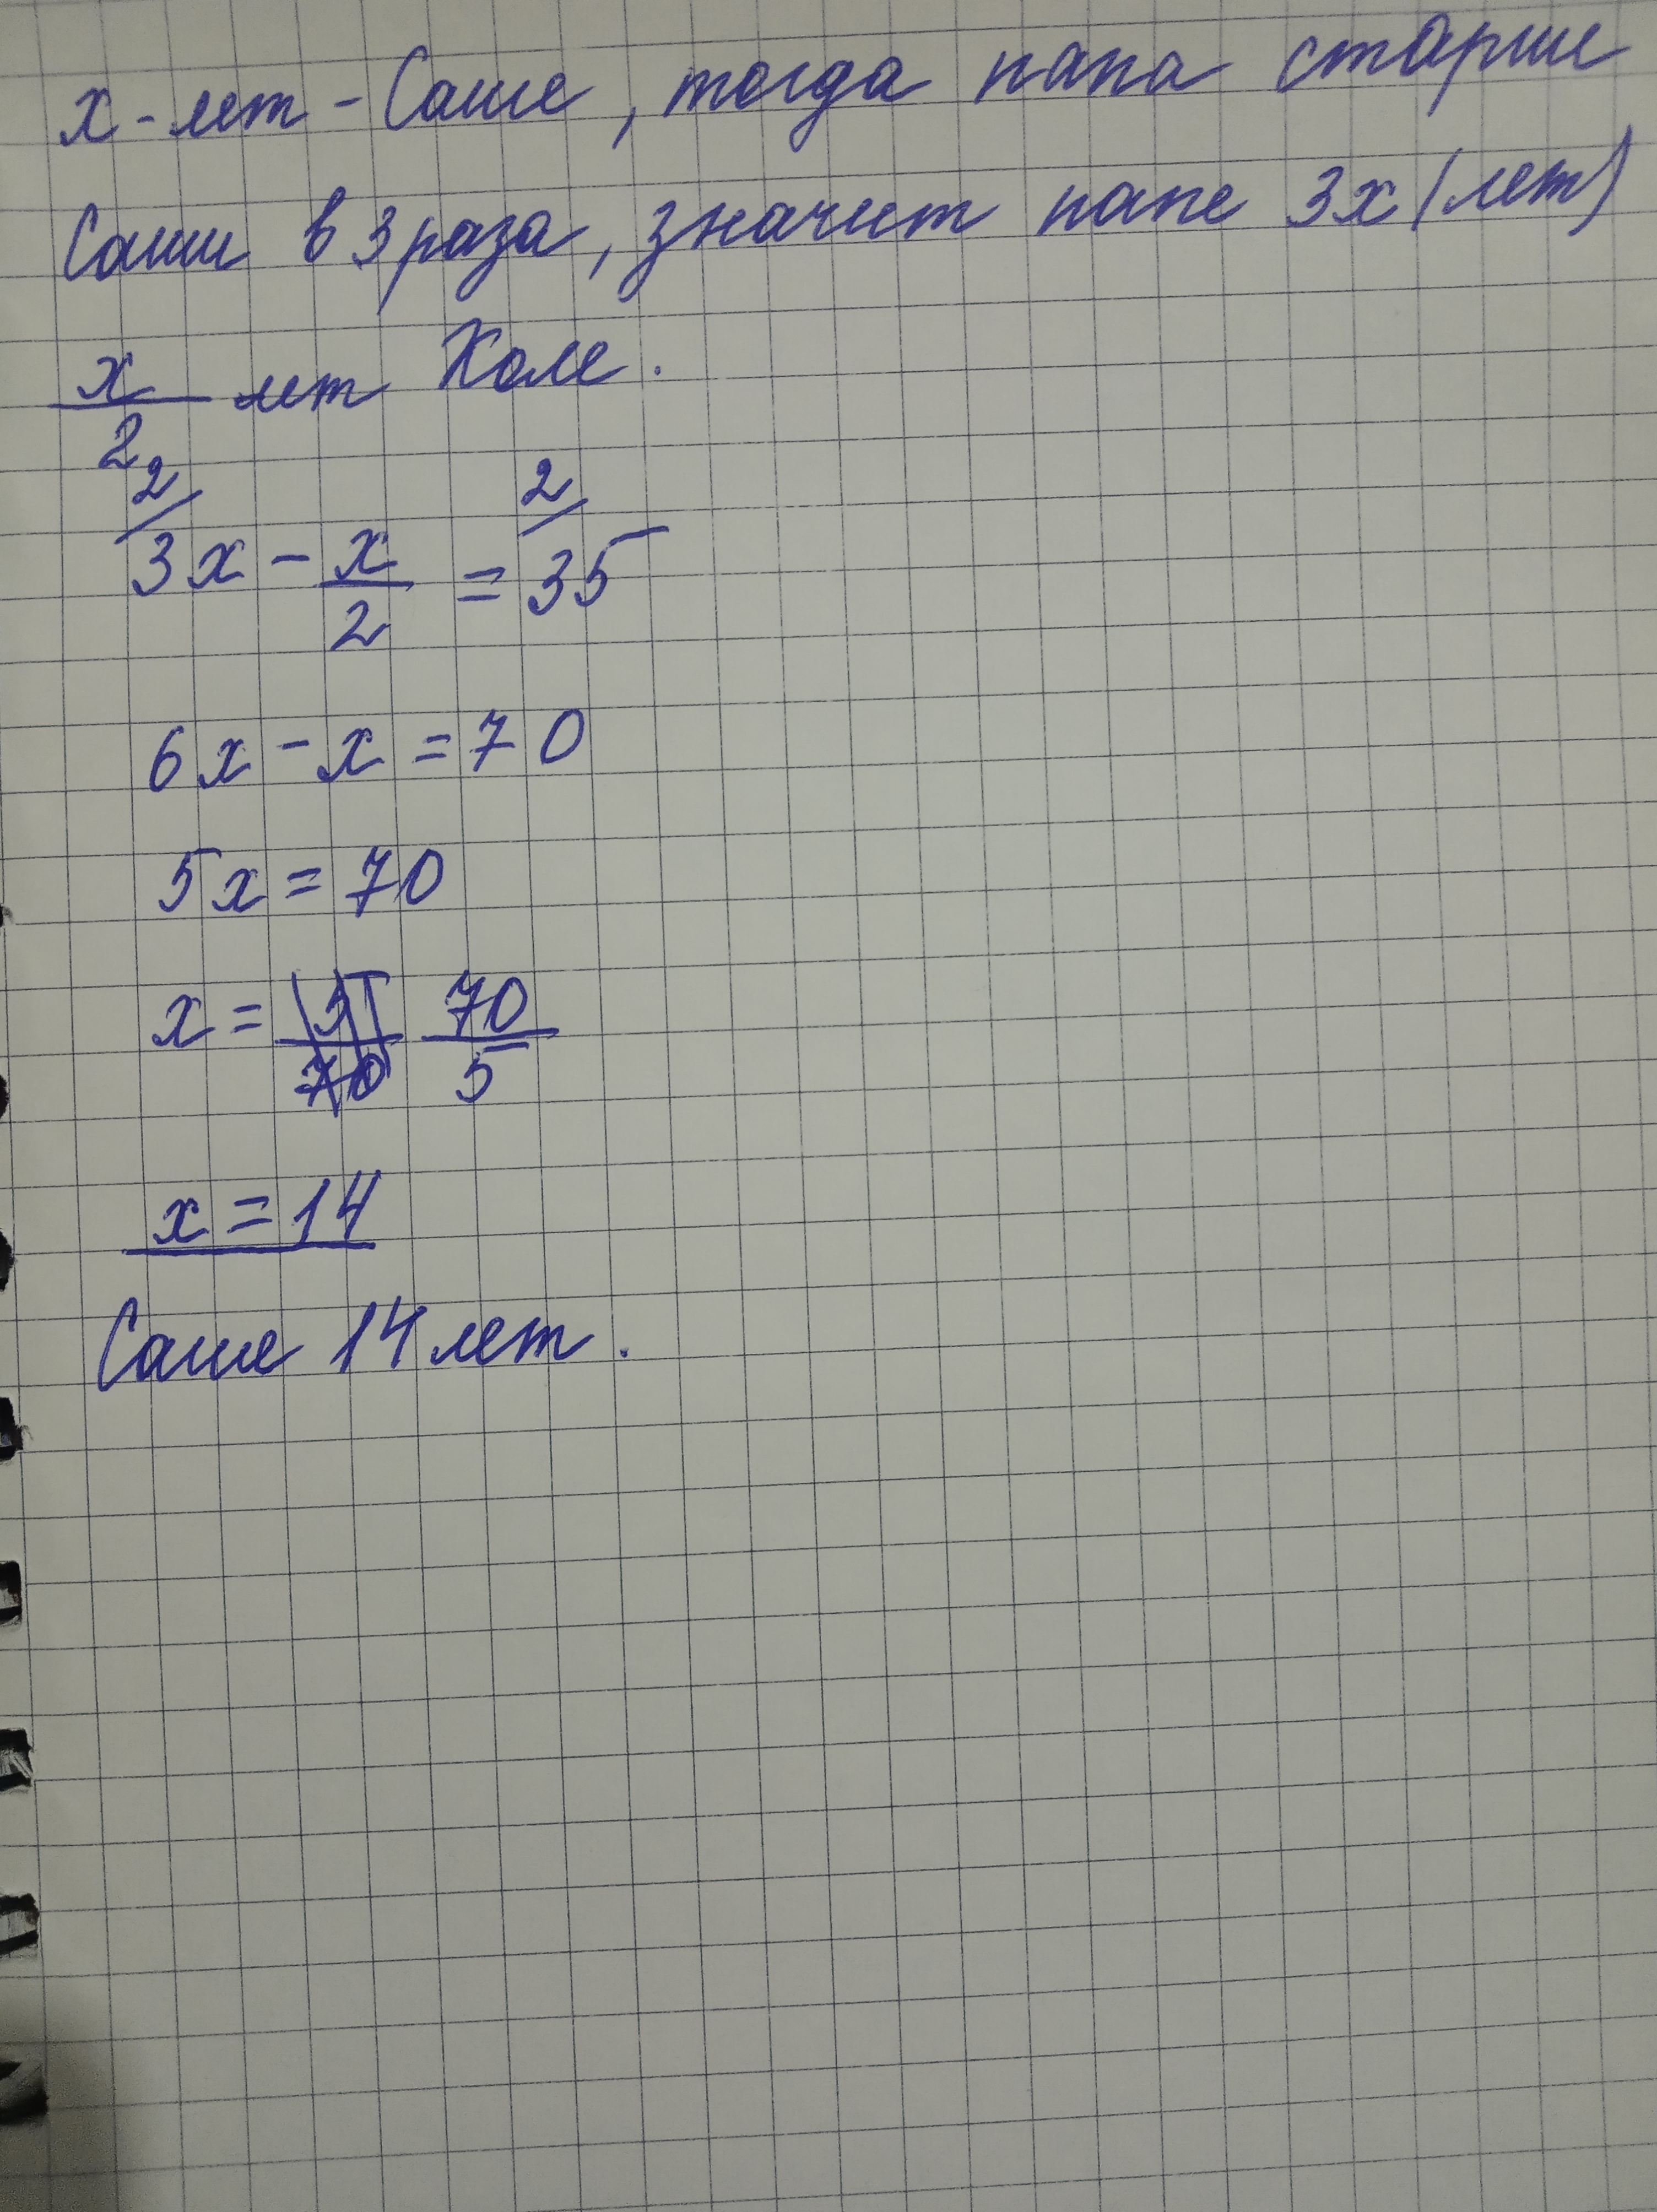 х - лет - Саше, тогда папа старше
Саши в 3 раза, значит папе 3х (лет)
х/2 лет Коле.
2/ 3х - х/2 = 2/ 35
6х - х = 70
5х = 70
х = 70/5
х = 14
Саше 14 лет.